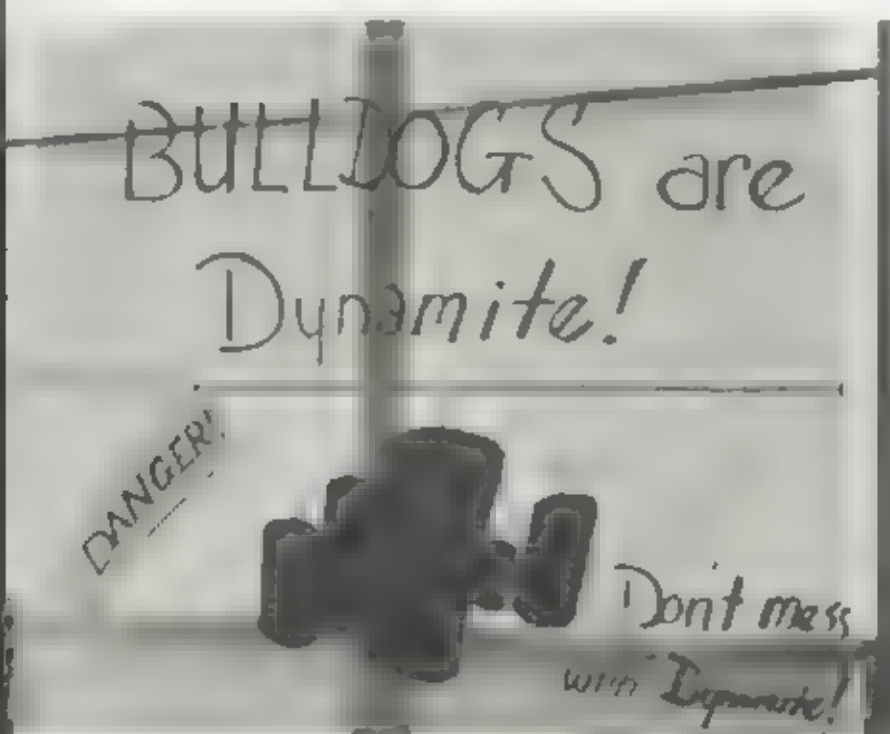 BULLDOGS are
Dynamite!
DANGER!
Don't mess
with Dynamite!